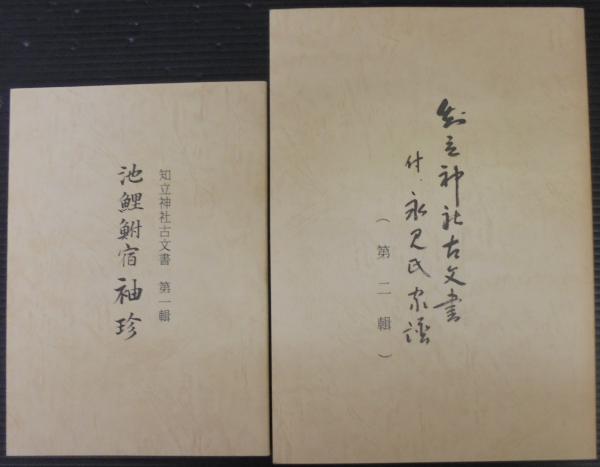 知立神社古文書 第一輯
池鯉鮒宿袖珍
知立神社古文書
付・永見氏家譜
(第二輯)